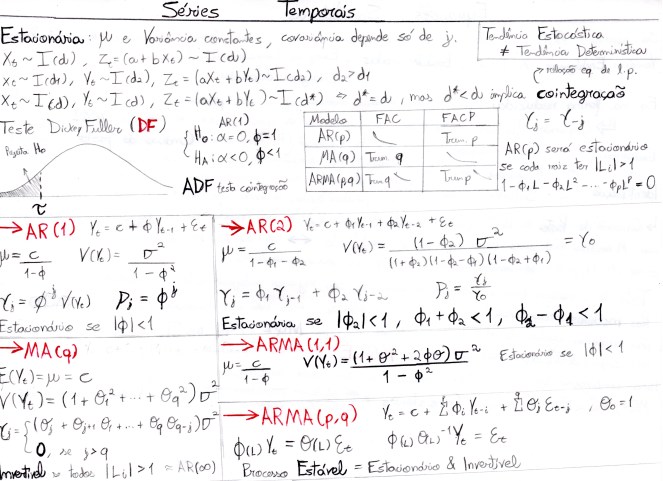 Séries Temporais
Estacionária: μ e Variância constantes, covariância depende só de j.
Xt ~ I(d), Zt = (a + bXt) ~ I(d)
Xt ~ I(d1), Yt ~ I(d2), Zt = (aXt + bYt) ~ I(d2), d2 > d1
Xt ~ I(d), Yt ~ I(d), Zt = (aXt + bYt) ~ I(d*) ⇒ d* = d, mas d* < d implica cointegração
Tendência Estocástica
≠ Tendência Determinística
relação eq. de l.p.
Teste Dickey Fuller (DF)
Rejeita H0
τ
AR(1)
H0: α=0, ϕ=1
HA: α<0, ϕ<1
ADF testa cointegração
Modelo FAC FACP
AR(p) Trunc. p
MA(q) Trunc. q
ARMA(p,q) Trunc q Trunc p
γj = γ-j
AR(p) será estacionário
se cada raiz ter |Li| > 1
1 - ϕ1L - ϕ2L² - ... - ϕpL^p = 0
→ AR(1) Yt = c + ϕYt-1 + εt
μ = c/(1-ϕ) V(Yt) = σ²/(1-ϕ²)
γj = ϕ^j V(Yt) ρj = ϕ^j
Estacionário se |ϕ| < 1
→ AR(2) Yt = c + ϕ1Yt-1 + ϕ2Yt-2 + εt
μ = c/(1-ϕ1-ϕ2) V(Yt) = (1-ϕ2)σ²/((1+ϕ2)(1-ϕ2-ϕ1)(1-ϕ2+ϕ1)) = γ0
γj = ϕ1γj-1 + ϕ2γj-2 ρj = γj/γ0
Estacionário se |ϕ2|<1, ϕ1+ϕ2<1, ϕ2-ϕ1<1
→ MA(q)
E(Yt) = μ = c
V(Yt) = (1 + θ1² + ... + θq²)σ²
γj = {(θj + θj+1 θ1 + ... + θq θq-j)σ²
0, se j>q
Invertível se todos |Li| > 1 = AR(∞)
→ ARMA(1,1)
μ = c/(1-ϕ) V(Yt) = (1+θ²+2ϕθ)σ²/(1-ϕ²) Estacionário se |ϕ| < 1
→ ARMA(p,q) Yt = c + Σϕi Yt-i + Σθj εt-j, θ0 = 1
ϕ(L)Yt = θ(L)εt ϕ(L)θ(L)⁻¹Yt = εt
Processo Estável = Estacionário & Invertível